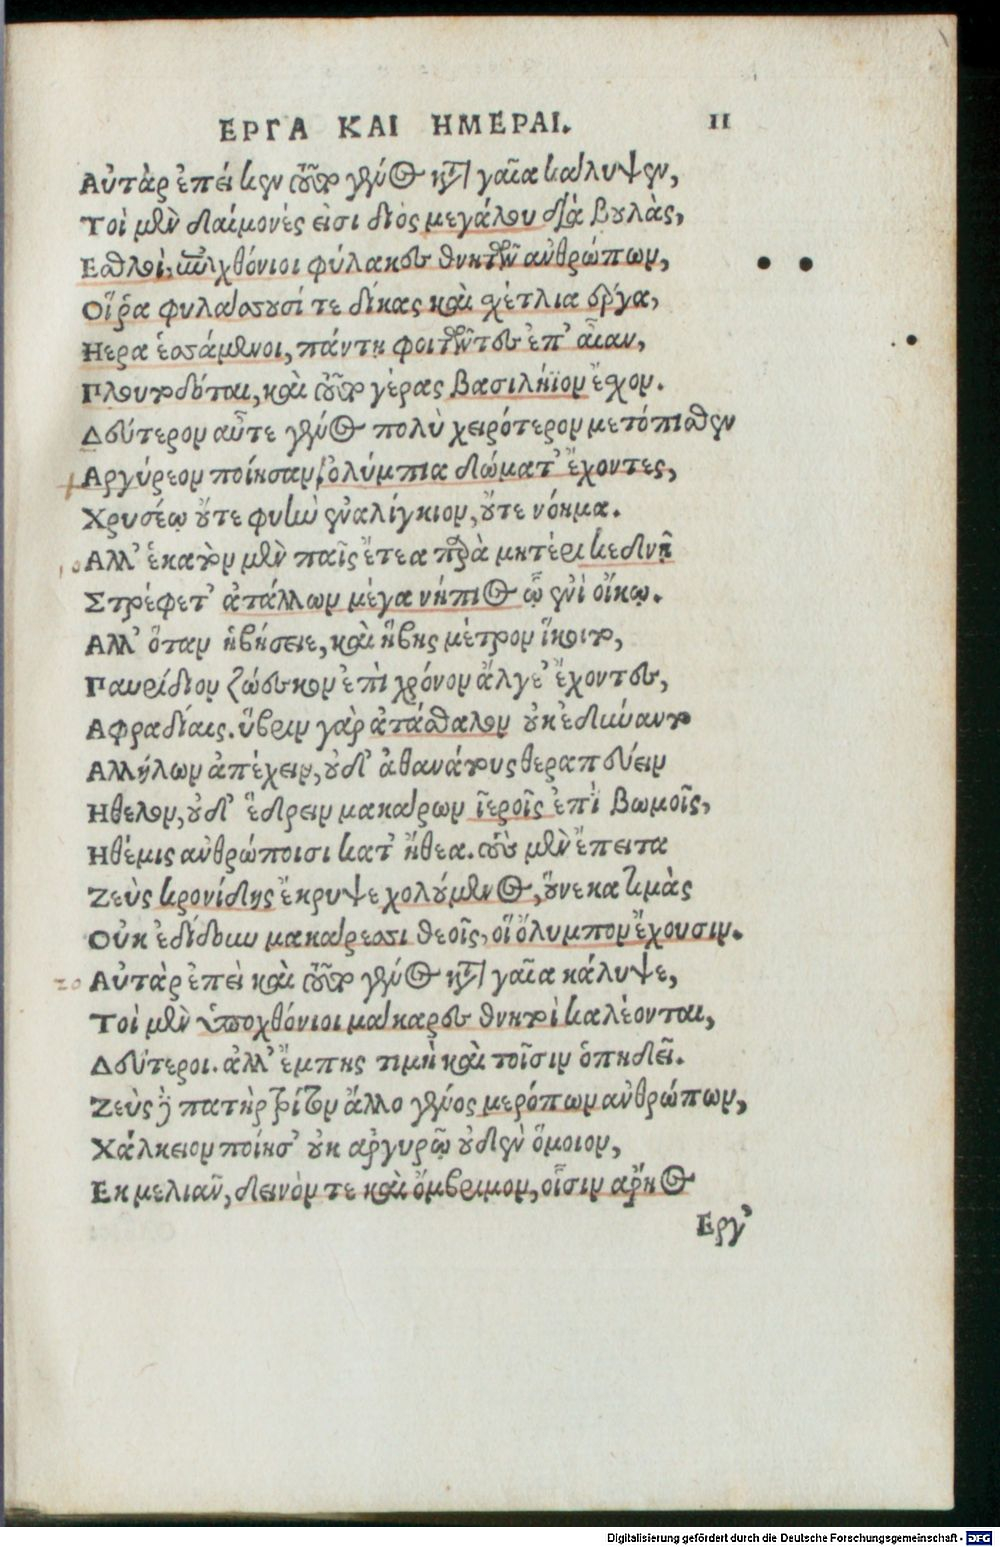 ΕΡΓΑ ΚΑΙ ΗΜΕΡΑΙ. 11
Αὐτὰρ ἐπεί κεν τοῦτο γένος κατὰ γαῖα καλύψεν,
Τοὶ μὲν δαίμονές εἰσι διὸς μεγάλου διὰ βουλὰς,
Εσθλοὶ, ἐπιχθόνιοι φύλακες θνητῶν ἀνθρώπων,
Οἵ ῥα φυλάσσουσί τε δίκας καὶ σχέτλια ἔργα,
Ηερα ἑσσάμενοι, πάντη φοιτῶντες ἐπ' αἶαν,
Πλουτοδόται, καὶ τοῦτο γέρας βασιλήϊον ἔχον.
Δεύτερον αὖτε γένος πολὺ χειρότερον μετόπισθεν
Αργύρεον ποίησαν, ὀλύμπια δώματ' ἔχοντες,
Χρυσέῳ οὔτε φυὴν ἐναλίγκιον, οὔτε νόημα.
Αλλ' ἑκατὸν μὲν παῖς ἔτεα παρὰ μητέρι κεδνῇ
10
Ετρέφετ' ἀτάλλων μέγα νήπιος ᾧ ἐνὶ οἴκῳ.
Αλλ' ὅταν ἡβήσειε, καὶ ἥβης μέτρον ἵκοιτο,
Παυρίδιον ζώεσκον ἐπὶ χρόνον ἄλγε' ἔχοντες,
Αφραδίαις. ὕβριν γὰρ ἀτάσθαλον οὐκ ἐδύναντο
Αλλήλων ἀπέχειν, οὐδ' ἀθανάτους θεραπεύειν
Ηθελον, οὐδ' ἕδρειν μακάρων ἱεροῖς ἐπὶ βωμοῖς,
Ηθέμις ἀνθρώποισι κατ' ἤθεα. τοὺς μὲν ἔπειτα
Ζεὺς κρονίδης ἔκρυψε χολούμενος, οὕνεκα τιμὰς
Οὐκ ἐδίδουν μακάρεσσι θεοῖς, οἳ ὄλυμπον ἔχουσιν.
20 Αὐτὰρ ἐπεὶ καὶ τοῦτο γένος κατὰ γαῖα κάλυψε,
Τοὶ μὲν ὑποχθόνιοι μάκαρες θνητοὶ καλέονται,
Δεύτεροι. ἀλλ' ἔμπης τιμὴ καὶ τοῖσιν ὀπηδεῖ.
Ζεὺς δὲ πατὴρ τρίτον ἄλλο γένος μερόπων ἀνθρώπων,
Χάλκειον ποίησ' οὐκ ἀργυρῷ οὐδὲν ὅμοιον,
Εκ μελιᾶν, δεινόν τε καὶ ὄμβριμον, οἷσιν ἄρηος
Εργ'
Digitalisierung gefördert durch die Deutsche Forschungsgemeinschaft - DFG